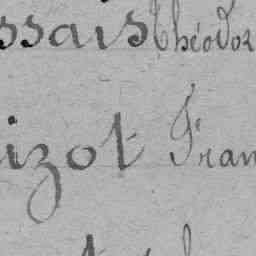 ssais Théodor
izot Fran